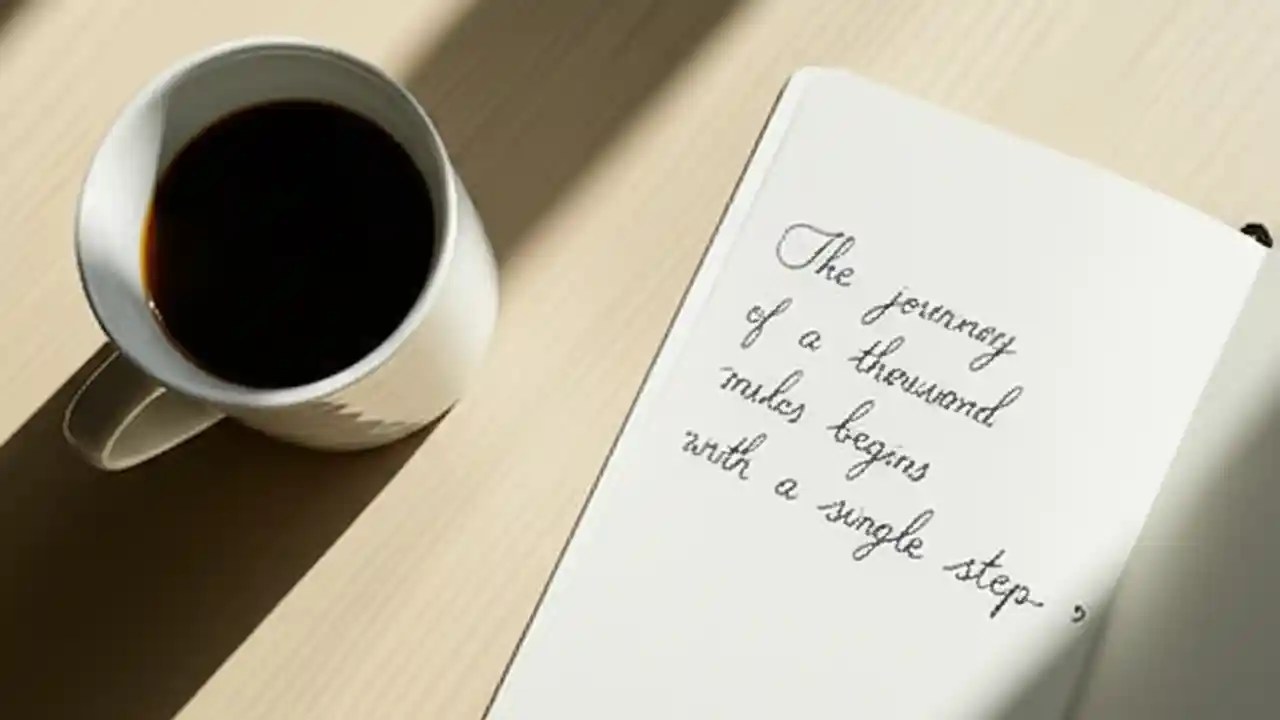 The journey
of a thousand
miles begins
with a single step,